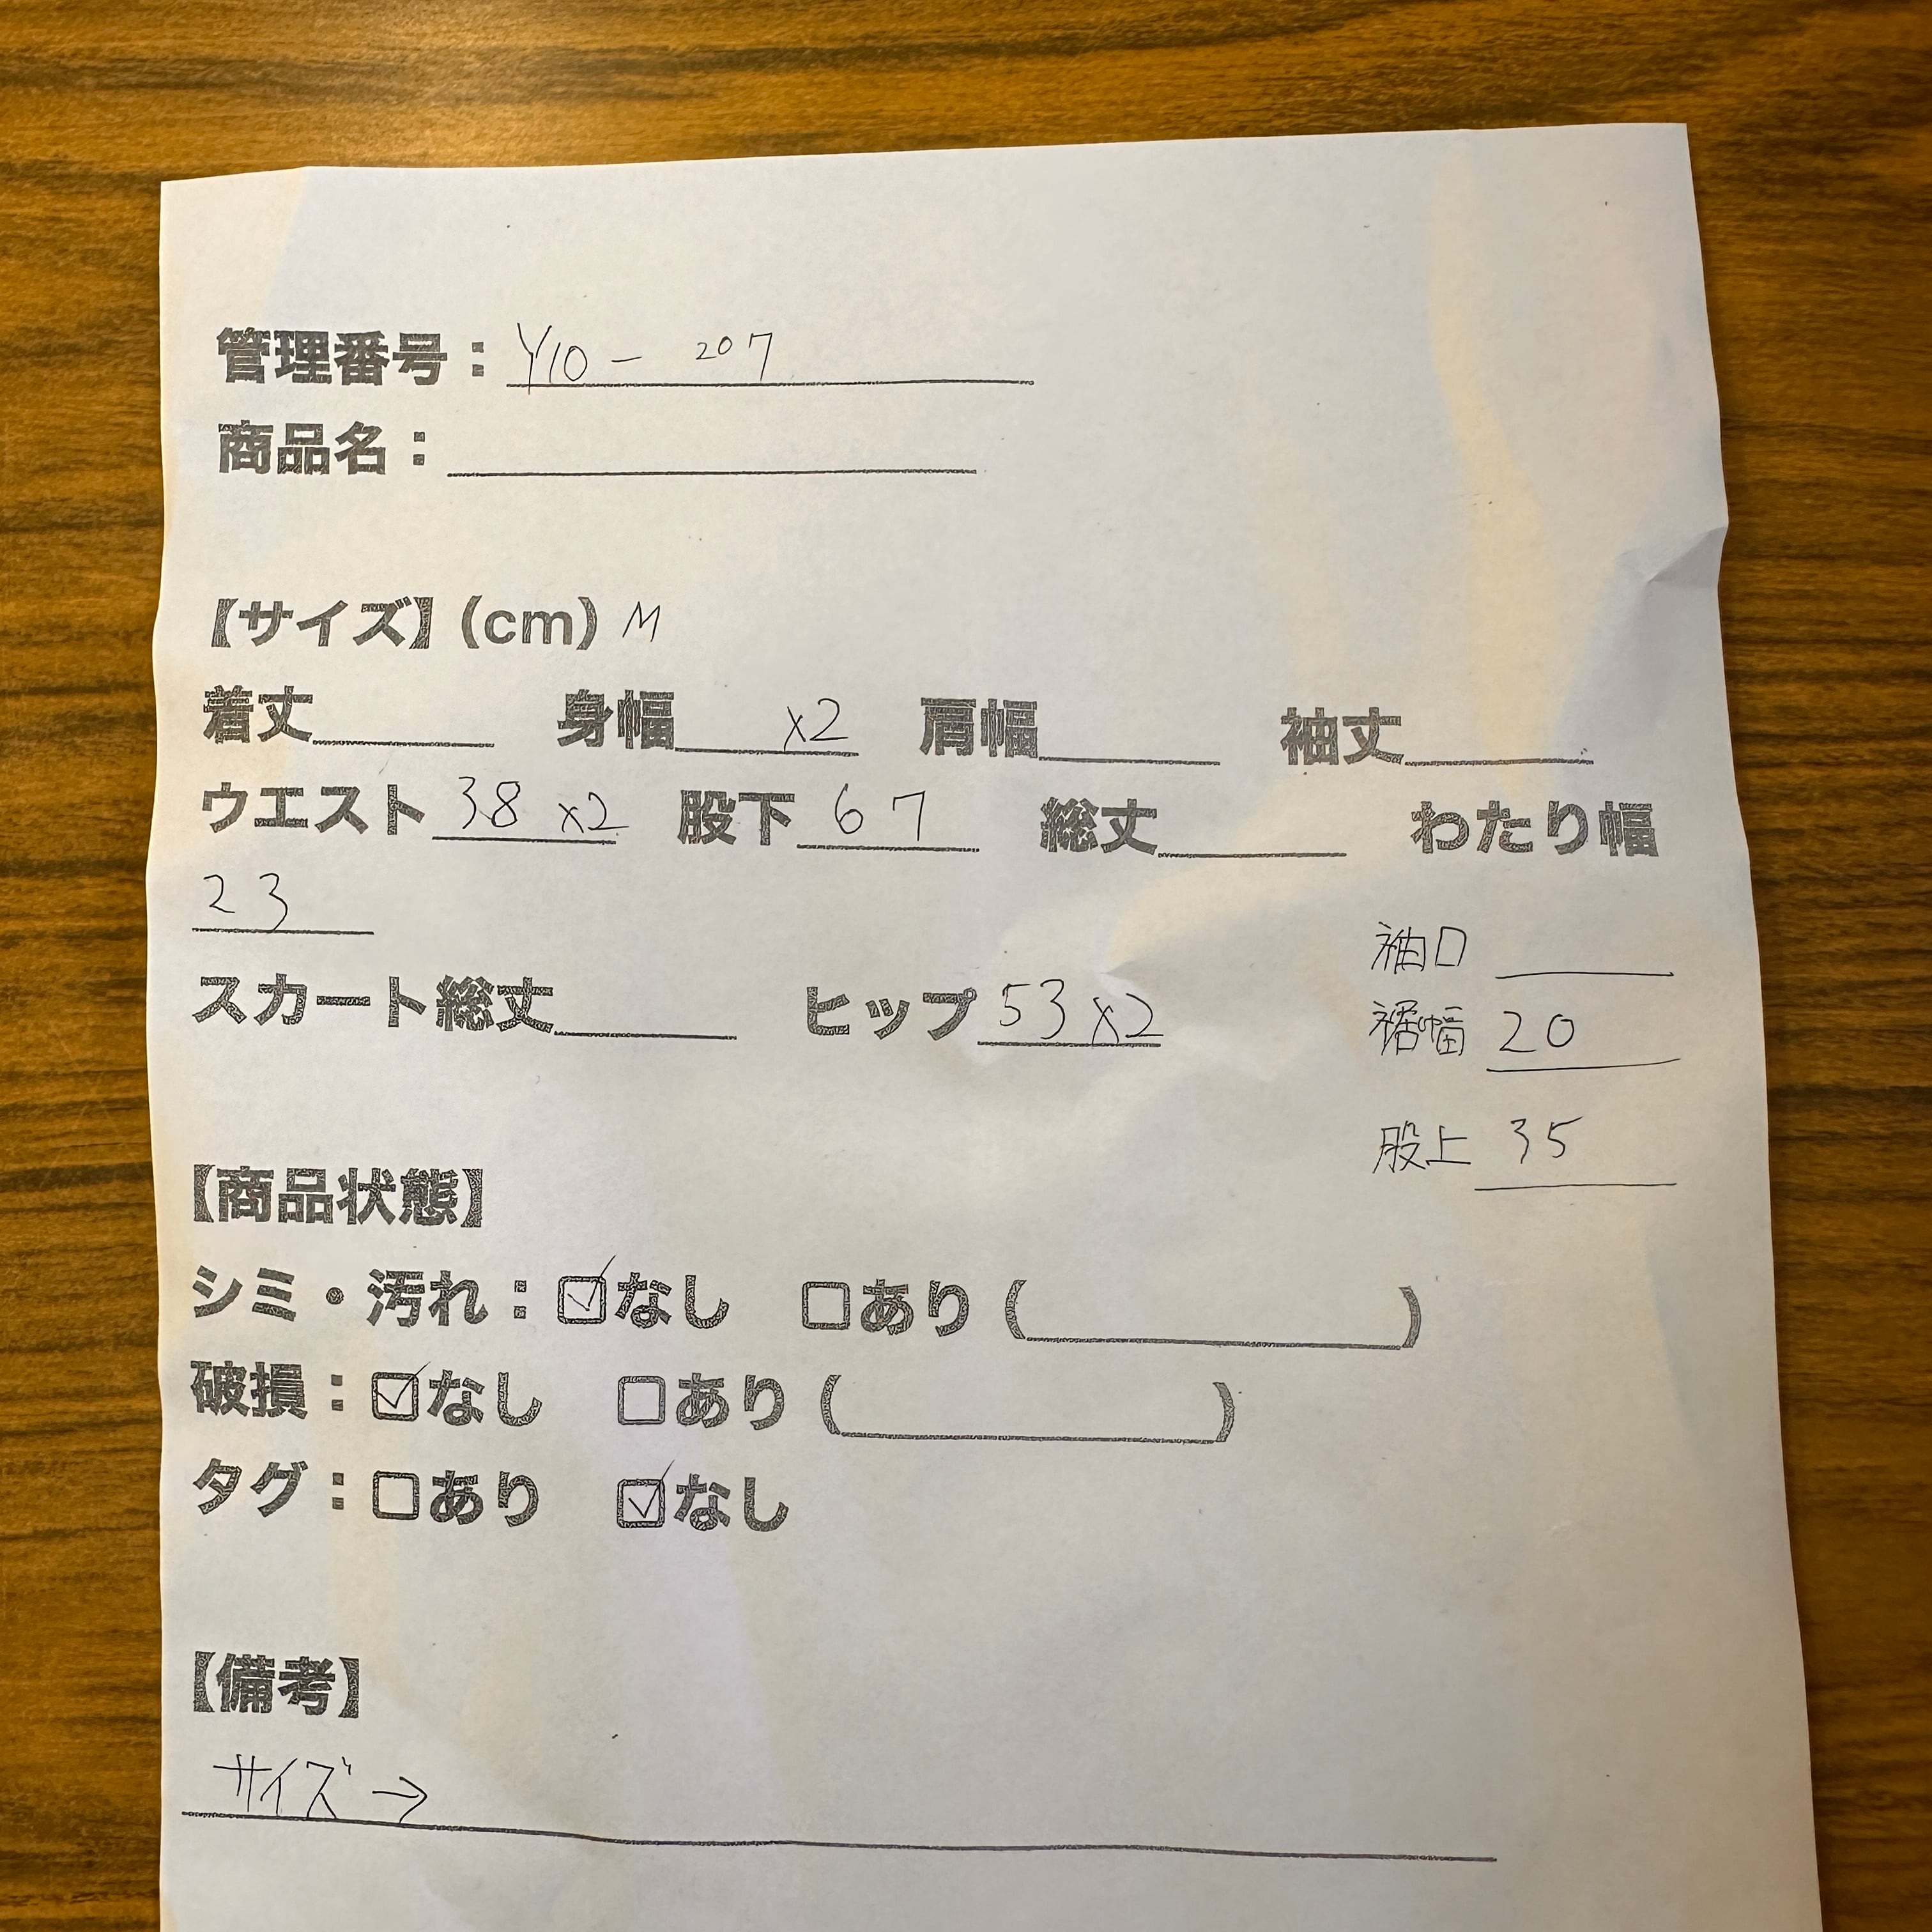 管理番号：Y10 - 207
商品名：
【サイズ】(cm) M
着丈 身幅 x2 肩幅 袖丈
ウエスト 38 x2 股下 67 総丈 わたり幅
23
袖口
スカート総丈 ヒップ 53 x2
裾幅 20
股上 35
【商品状態】
シミ・汚れ：☑なし □あり( )
破損：☑なし □あり( )
タグ：□あり ☑なし
【備考】
サイズ→